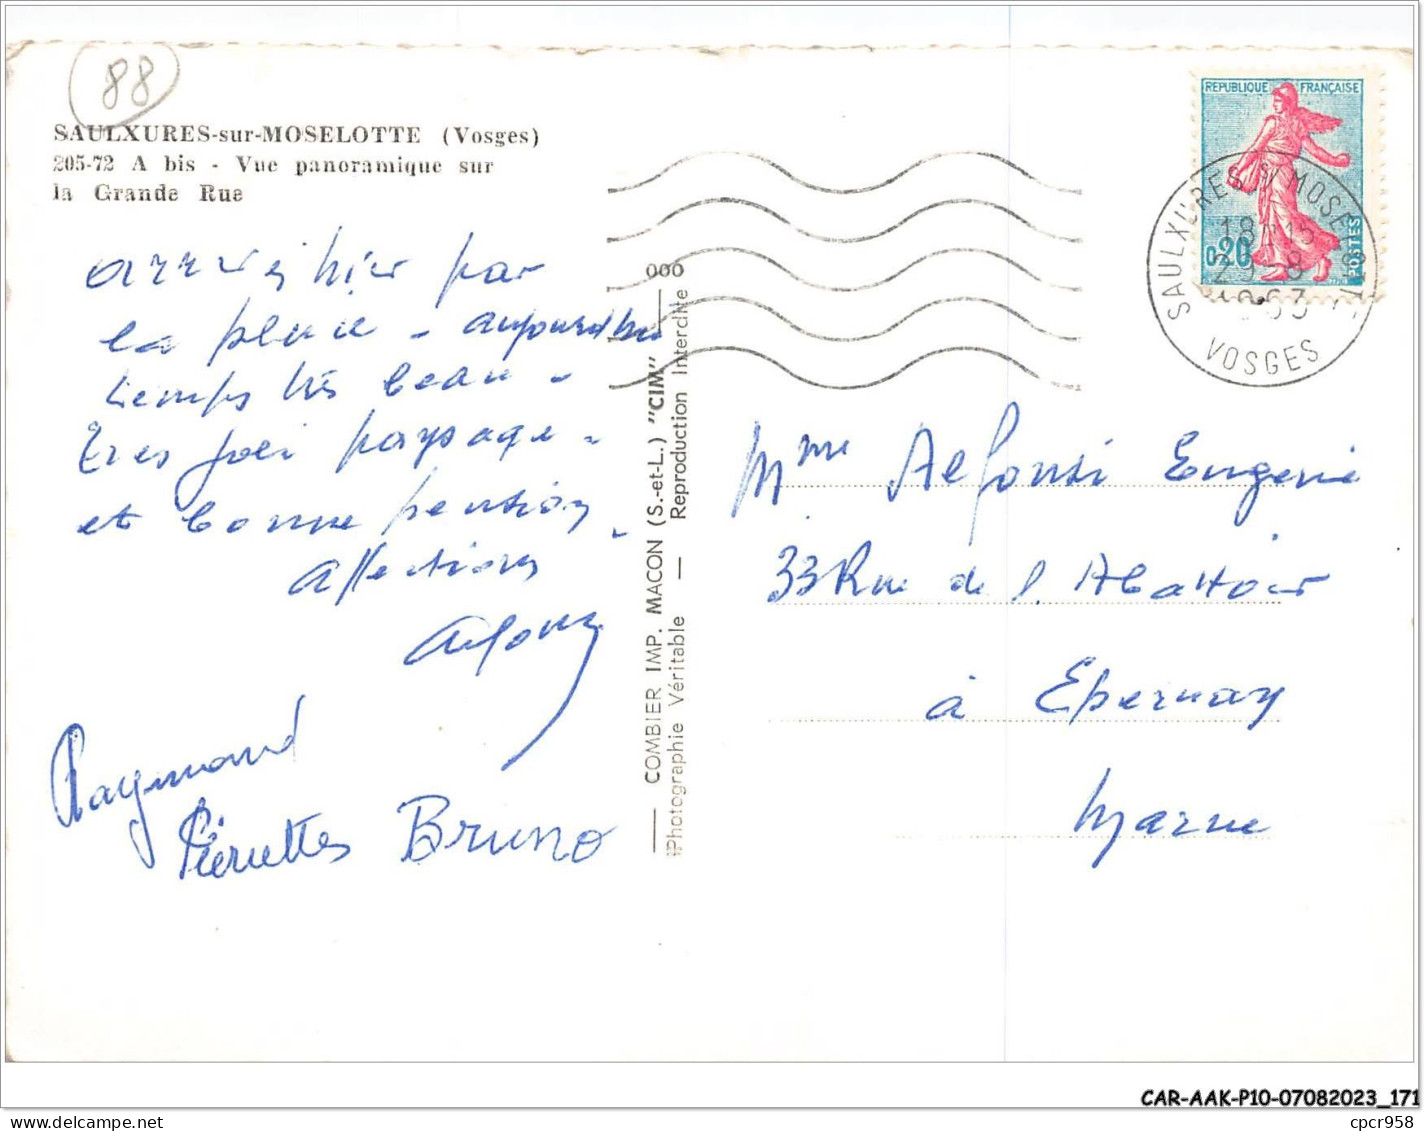 88
SAULXURES-sur-MOSELOTTE (Vosges)
205-72 A bis - Vue panoramique sur
la Grande Rue
arrivés hier par
la pluie - aujourd'hui
temps très beau -
Très joli paysage -
et bonne pension.
Affections
Alfonsi
Raymond
Pierrettes Bruno
COMBIER IMP. MACON (S.-et-L.) "CIM"
Photographie Véritable — Reproduction Interdite
000
REPUBLIQUE FRANÇAISE
0,20
POSTES
SAULXURES S/ MOSELOTTE
18 H 15
29-8
1963
VOSGES
Mme Alfonsi Eugenie
33 Rue de l'Abattoir
à Epernay
Marne
CAR-AAK-P10-07082023_171
cpcr958